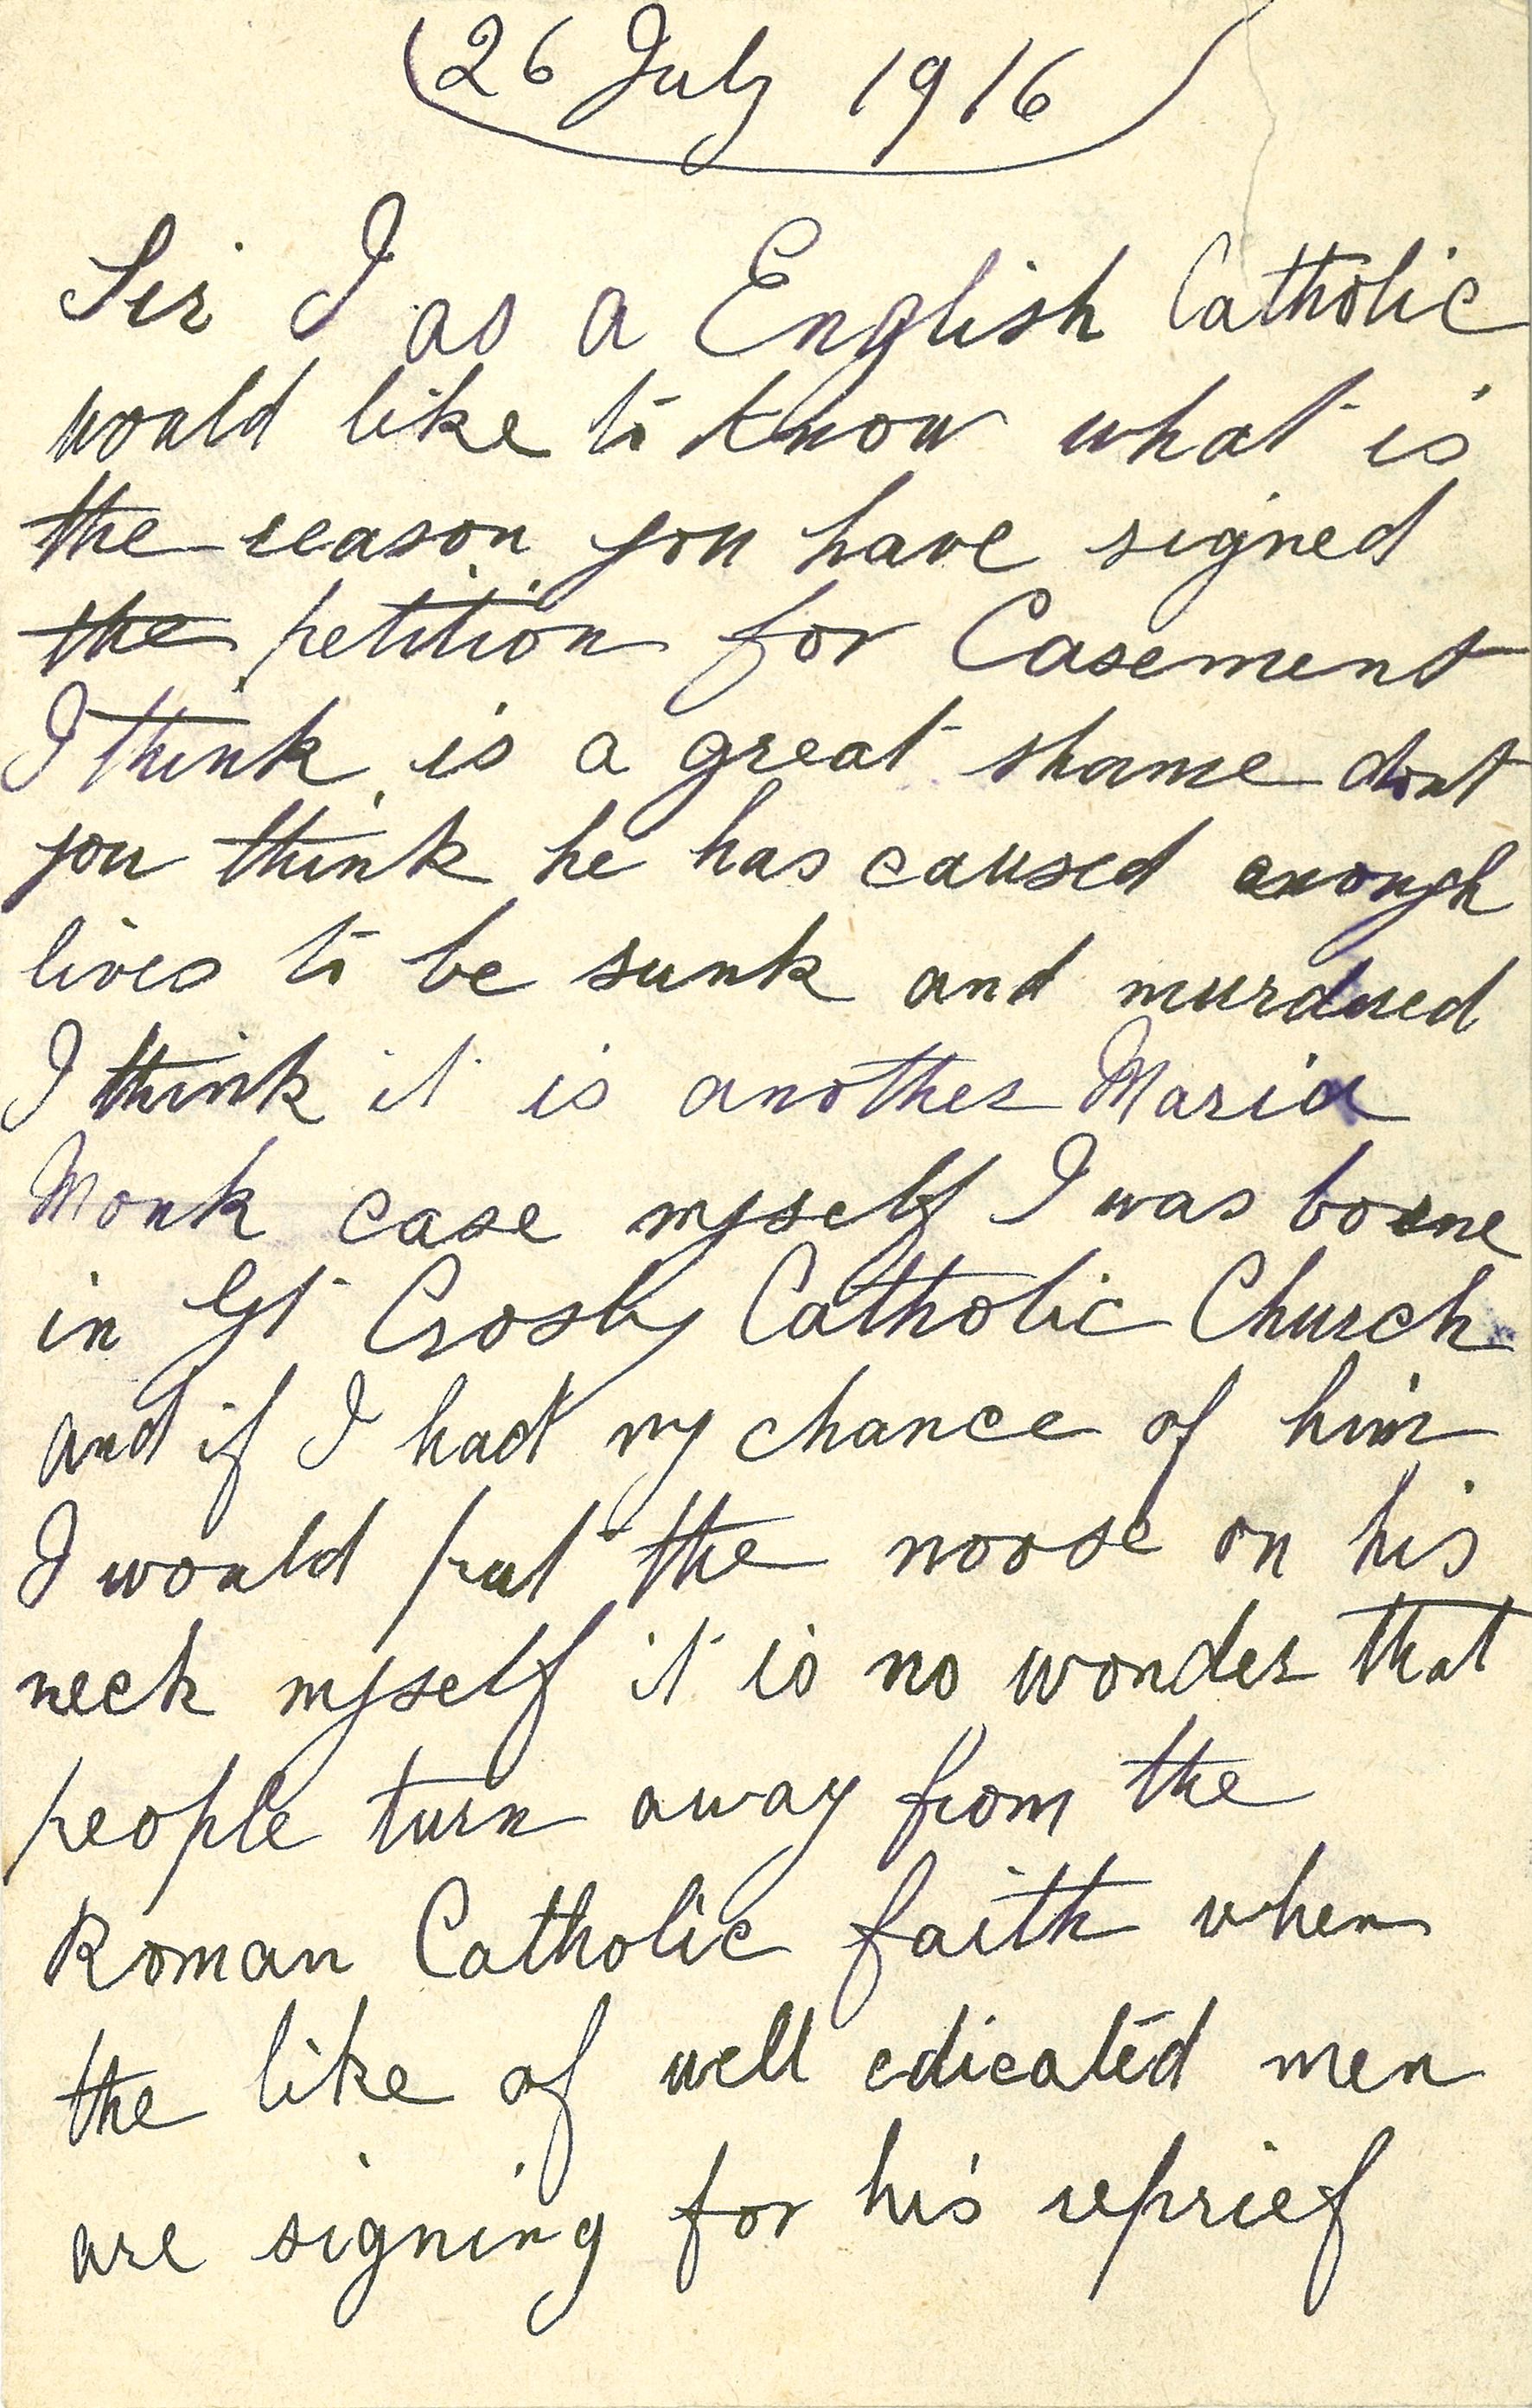 (26 July 1916)
Sir I as a English Catholic
would like to know what is
the reason you have signed
the petition for Casement
I think is a great shame dont
you think he has caused enough
lives to be sunk and murdued
I think it is another Maria
Monk case myself I was borne
in Gt Crosby Catholic Church
and if I had my chance of him
I would put the noose on his
neck myself it is no wonder that
people turn away from the
Roman Catholic faith when
the like of well edicated men
are signing for his reprief